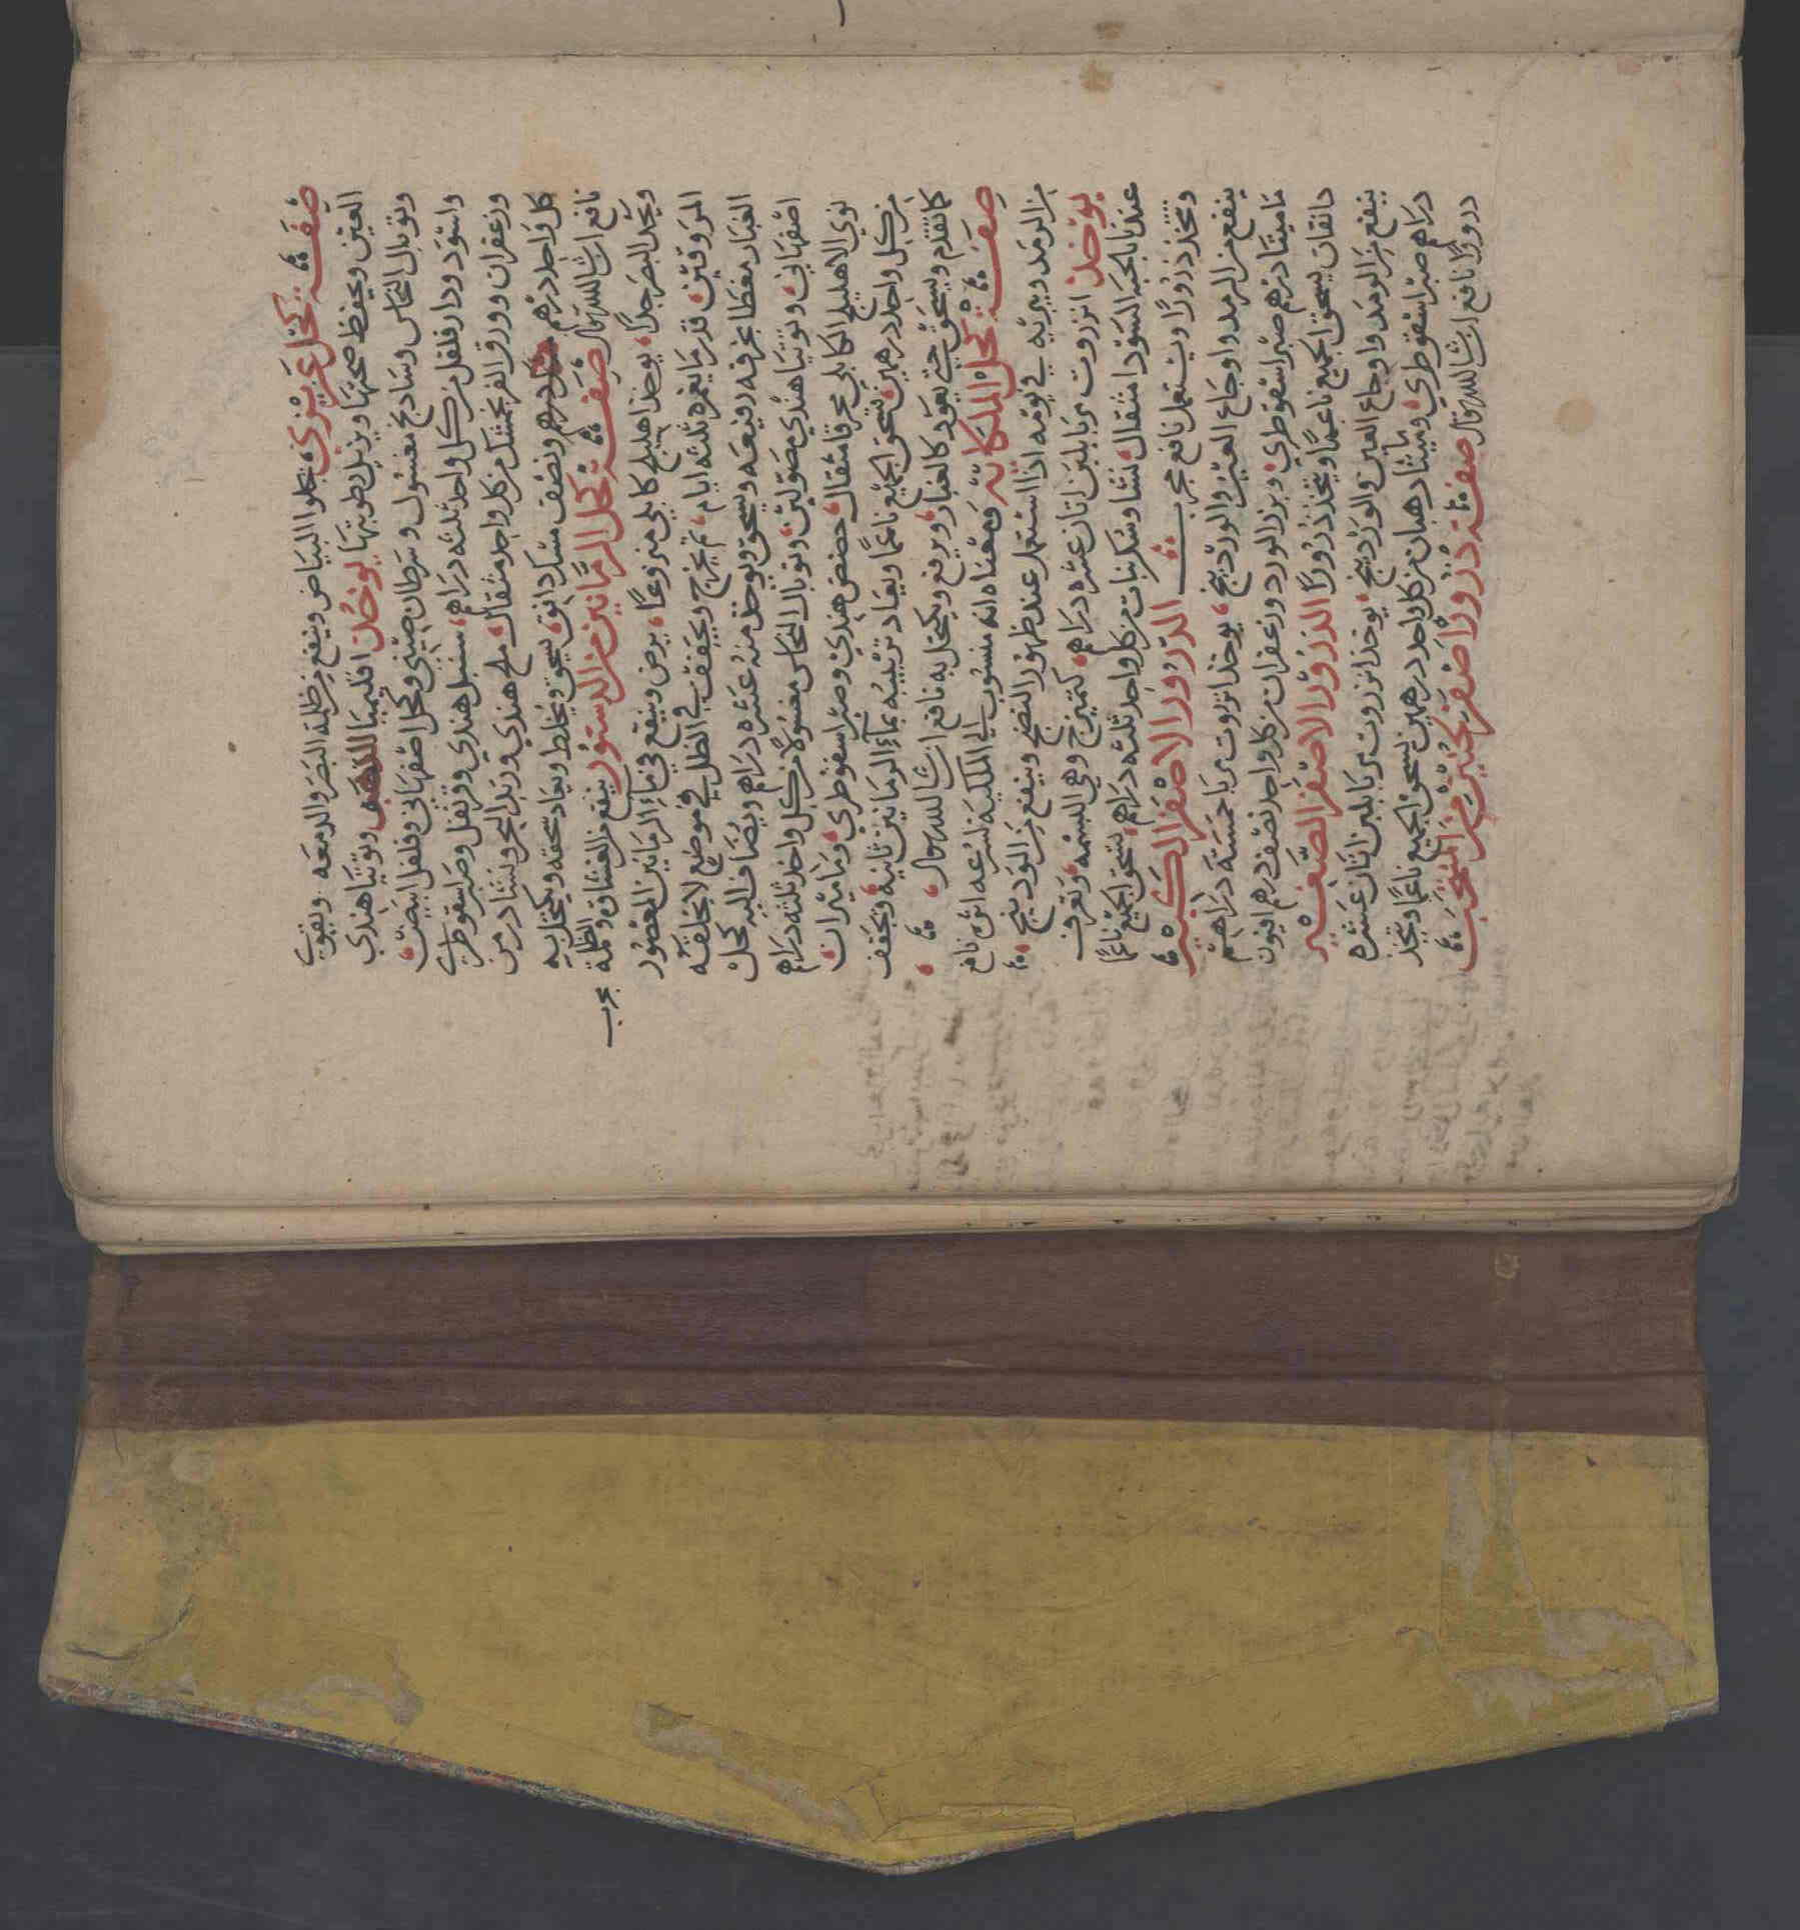 صفة كحل عزيزي يجلو البياض وينفع من ظلمة البصر والدمعه ويقوي
العين ويحفظ صحتها ويزيل رطوبتها يوخذ اقليميا الذهب وتوتيا هندي
وتوبال النحاس وسادج مغسول وسرطان صيني وكحل اصفهاني وفلفل ابيض
واسود ودار فلفل من كل واحد ثلثه دراهم سنبل هندي وقرنفل وصبر اسقوطري
وزعفران وورق الفرنجمشك من كل واحد مثقال ملح هندي وزبد البحر ونشادر من
كل واحد درهم ونصف مسك دانق يسحق ويخلط ويعاد سحقه ويكتحل به
نافع ان شا الله تعالى صفة كحل الرمانين من الدستور ينفع من الغشاق وظلمة
ويحد البصر جدا يوخذ اهليلج كابلي منزوعا يرض وينقع في ماء الرمانين المعصور
مجرب
المروقين قدر ما يغمره ثلثه ايام ثم يخرج ويجفف في الظل في موضع لا يلحقه
الغبار مغطا بخرقه رفيعه ويسحق ويوخذ منه عشره دراهم ويضاف اليه كحل
اصفهاني وتوتيا هندي مصولين وتوبال النحاس مغسولا من كل واحد ثلثه دراهم
نوي الاهليلج الكابلي محرقا مثقال حضض هندي وصبر اسقوطري وماميران
من كل واحد درهمين يسحق الجميع ناعما ويعاد تربيبه بماء الرمانين ثانية ويجفف
كما تقدم ويسحق حتى يعود كالغبار ويرفع ويكتحل به نافع ان شا الله تعالى
صفة كحل الملكانه ومعناه انه منسوب الي الملكيه لسرعه اثره نافع
من الرمد ويبريه في يومه اذا استعمل عند ظهور النضج وينفع من الوردينج
يوخذ انزروت مربا بلبن اتان عشره دراهم كتميزج وهي البشمه وتعرف
عندنا بالحبه السودا مثقال نشا وسكر نبات من كل واحد ثلثه دراهم يسحق الجميع ناعما
ويتخذ ذرورا ويستعمل نافع مجرب الذرور الاصفر الكبير
ينفع من الرمد واوجاع العين والوردينج يوخذ انزروت مربا خمسة دراهم
ماميثا درهم صبر اسقوطري وبزر الورد وزعفران من كل واحد نصف درهم افيون
دانقان يسحق الجميع ناعما ويتخذ ذرورا الذرور الاصفر الصغير
ينفع من الرمد واوجاع العين والوردينج يوخذ انزروت مربا بلبن اتان عشره
دراهم صبر اسقوطري وماميثا درهمان من كل واحد درهمين يسحق الجميع ناعما ويتخذ
ذرورا نافع ان شا الله تعالى صفة ذرور اصفر